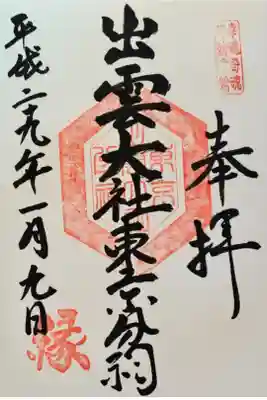 奉拝
出雲大社東京分祠
平成二十九年一月九日
縁